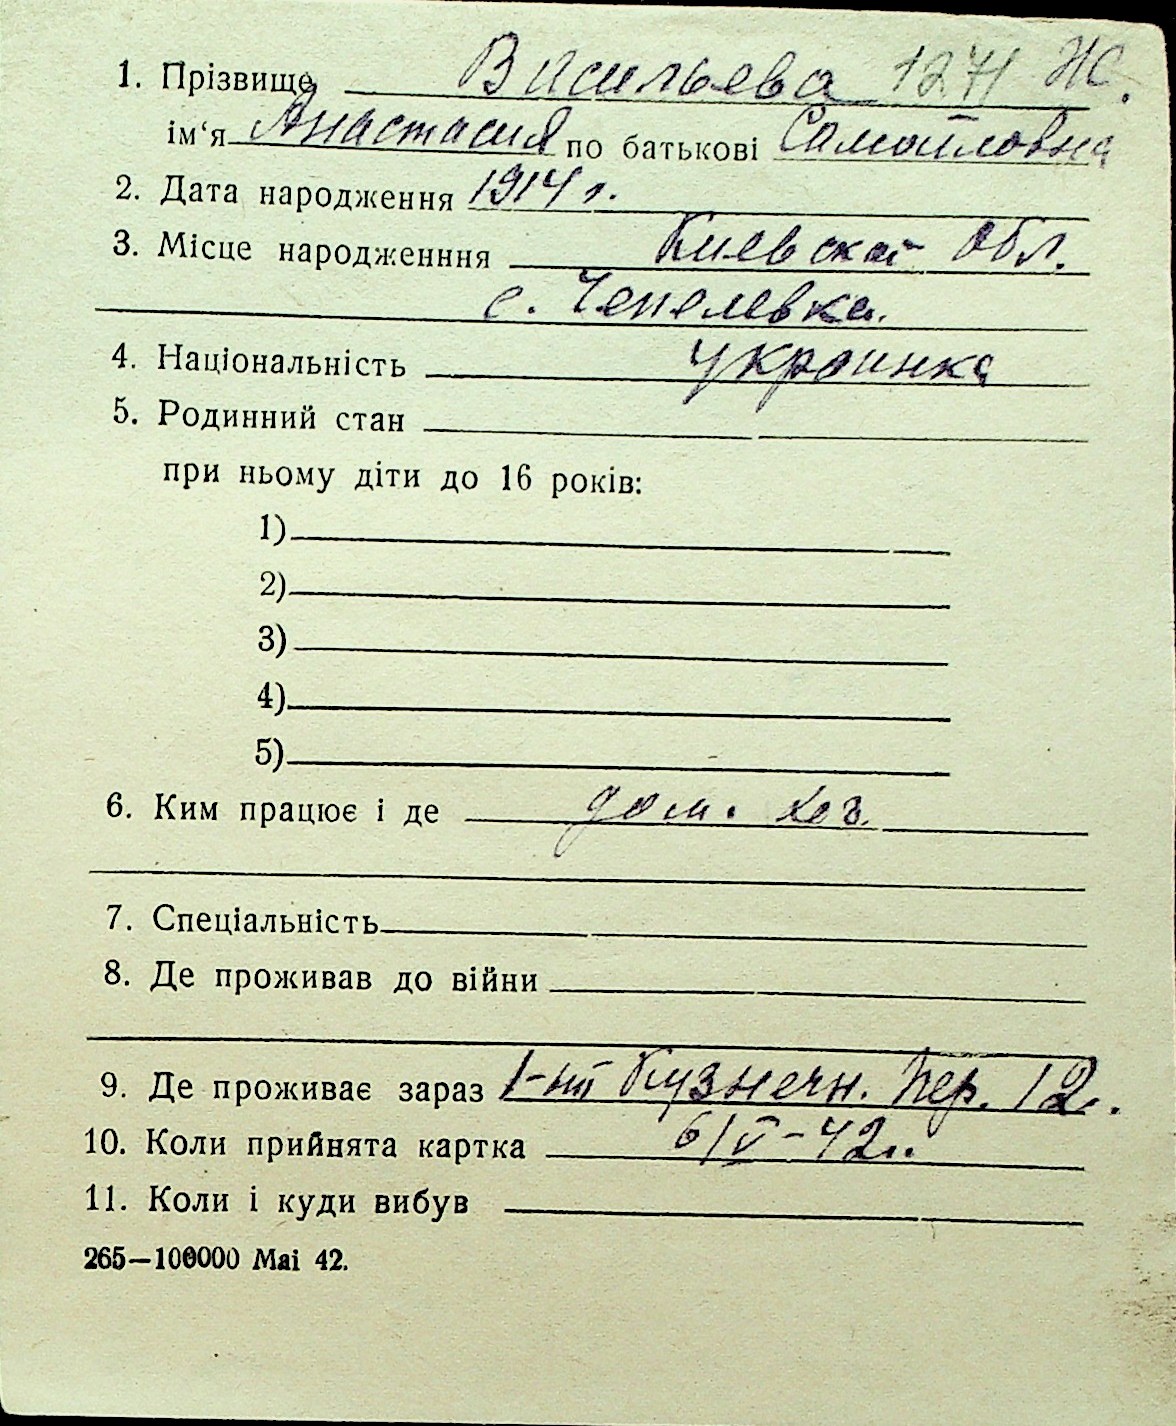 1. Прізвище Васильева 1271 Ж.
ім'я Анастасия по батькові Самойловна
2. Дата народження 1914 г.
3. Місце народженння Киевской Обл.
с. Чепелевка.
4. Національність украинка
5. Родинний стан
при ньому діти до 16 років:
1)
2)
3)
4)
5)
6. Ким працює і де дом. хоз.
7. Спеціальність
8. Де проживав до війни
9. Де проживає зараз 1-ий Кузнечн. пер. 12.
10. Коли прийнята картка 6/V-42г.
11. Коли і куди вибув
265—100000 Mai 42.